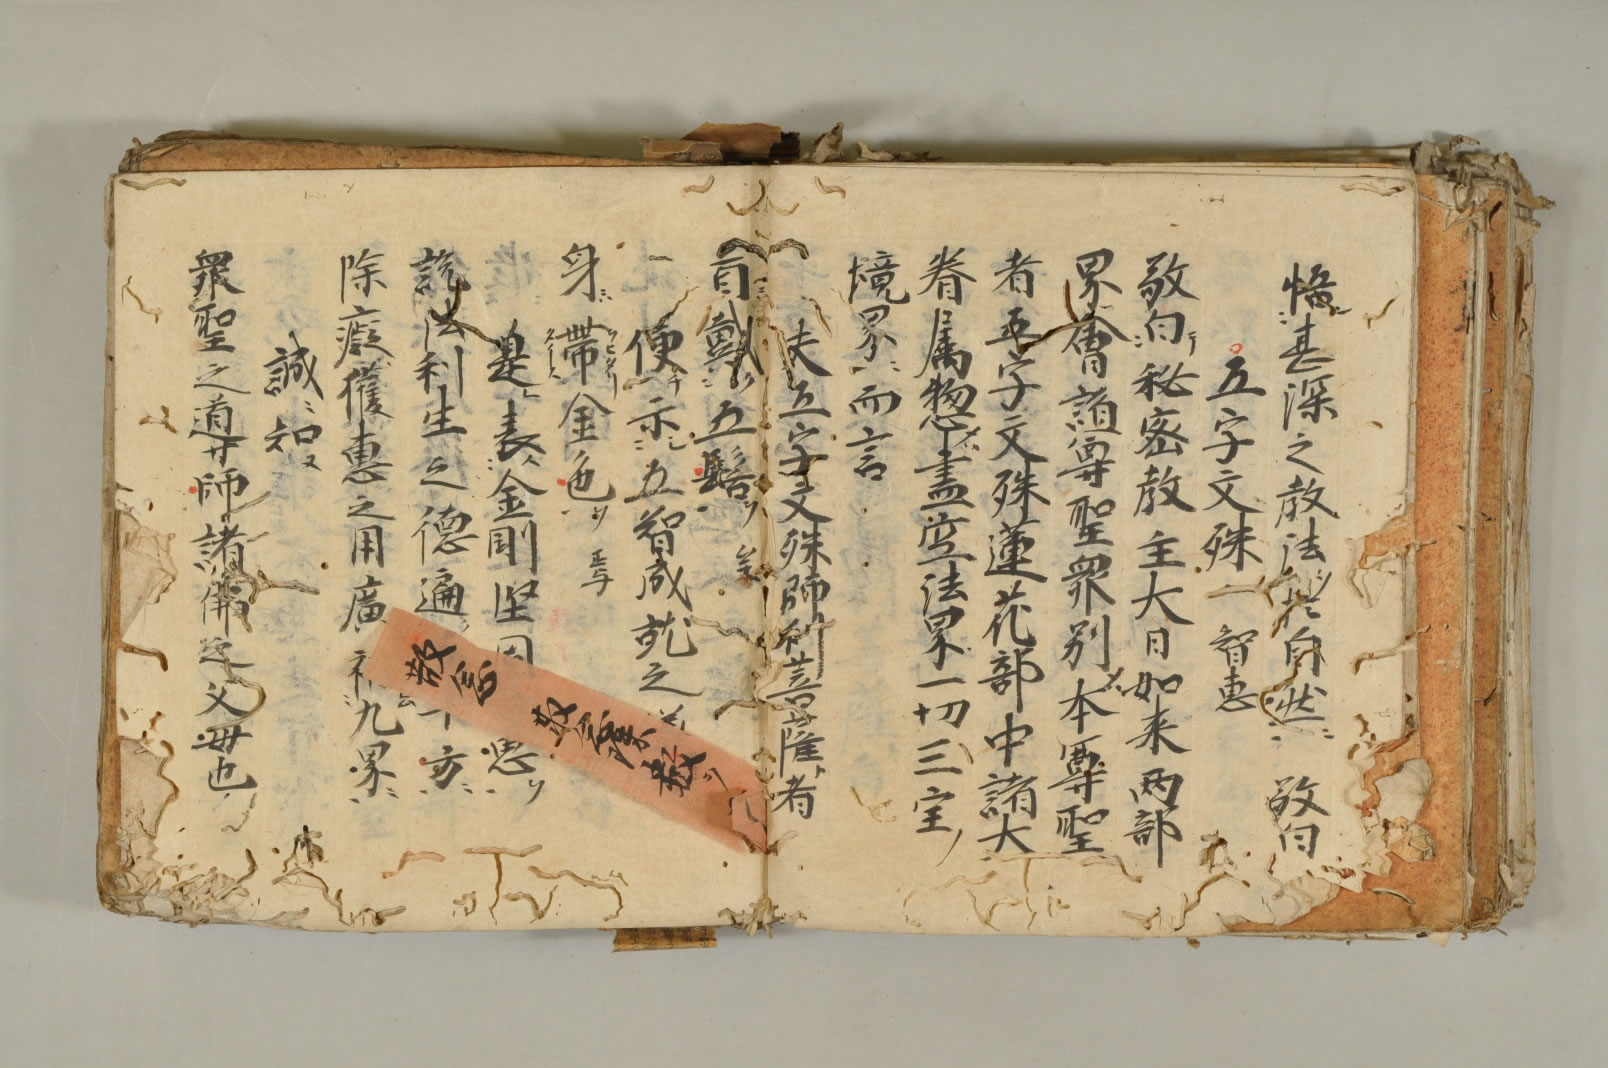 悟甚深之教法於自然 敬白
五字文殊 智恵
敬白秘密教主大日如来両部
界會諸尊聖衆別本尊聖
者五字文殊蓮花部中諸大
眷属惣盡空法界一切三宝
境界而言
夫五字文殊師利菩薩者
首戴五髻
便示五智成就之
身帯金色
是表金剛堅固
説法利生之徳遍 十方
除癡獲恵之用廣 九界
誠知
衆聖之導師諸佛之父毋也